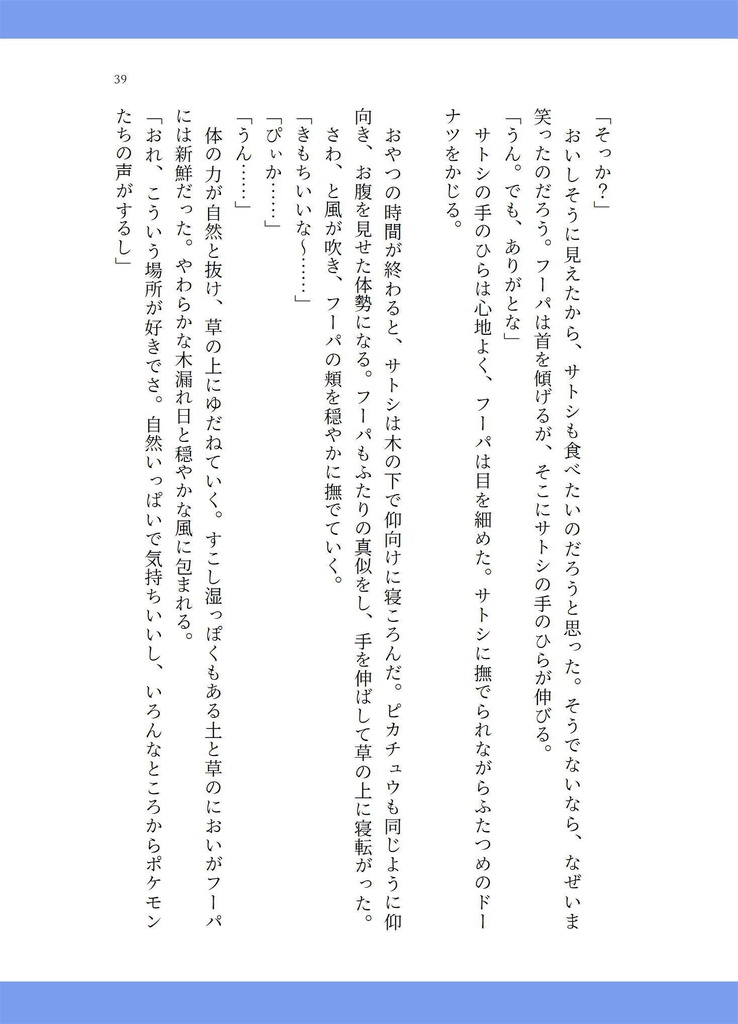 39
「そっか？」
おいしそうに見えたから、サトシも食べたいのだろうと思った。そうでないなら、なぜいま
笑ったのだろう。フーパは首を傾げるが、そこにサトシの手のひらが伸びる。
「うん。でも、ありがとな」
サトシの手のひらは心地よく、フーパは目を細めた。サトシに撫でられながらふたつめのドー
ナツをかじる。
おやつの時間が終わると、サトシは木の下で仰向けに寝ころんだ。ピカチュウも同じように仰
向き、お腹を見せた体勢になる。フーパもふたりの真似をし、手を伸ばして草の上に寝転がった。
さわ、と風が吹き、フーパの頬を穏やかに撫でていく。
「きもちいいな～……」
「ぴぃか……」
「うん……」
体の力が自然と抜け、草の上にゆだねていく。すこし湿っぽくもある土と草のにおいがフーパ
には新鮮だった。やわらかな木漏れ日と穏やかな風に包まれる。
「おれ、こういう場所が好きでさ。自然いっぱいで気持ちいいし、いろんなところからポケモン
たちの声がするし」